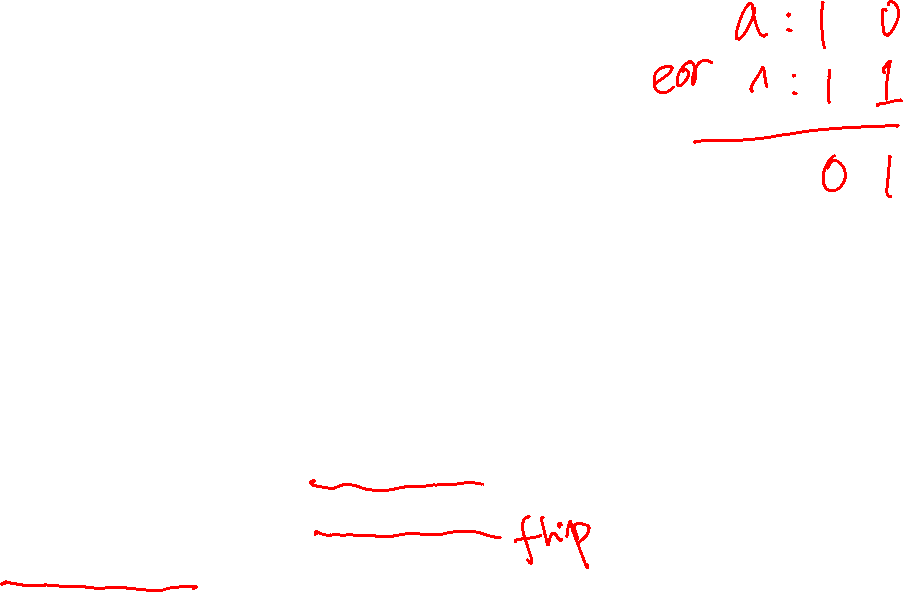 a : 1 0
eor ^ : 1 1
0 1
flip